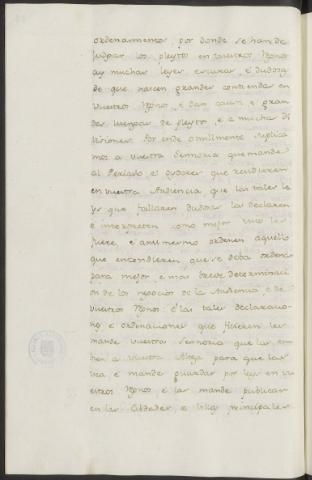 ordenamientos por donde se han de
judgar los pleytos en vuestros Regnos
ay muchas leyes escuras, é dudosas
de que nacen grandes contiendas en
vuestros Regnos, é dan causa é gran
des luengas de pleytos, e a muchas di
visiones. Por ende omilmente suplica
mos a vuestra Sennoria que mande
al Perlado é oydores que residieren
en vuestra Audiencia que las tales le
yes que fallaren dudosas las declaren
e interpreten como mejor visto les
fuere, é ansi mesmo ordenen aquello
que entendieren que se deba ordenar
para mejor e mas breve determinaci
on de los negocios de la Audiencia é de
vuestros Regnos: é las tales declaracio
nes e ordenaciones que ficieren les
mande vuestra Sennoria que las em
bien a vuestra Alteza para que las
vea e mande guardar por leys en vu
estros Regnos, é las mande publicar
en las Cibdades, e villas principales